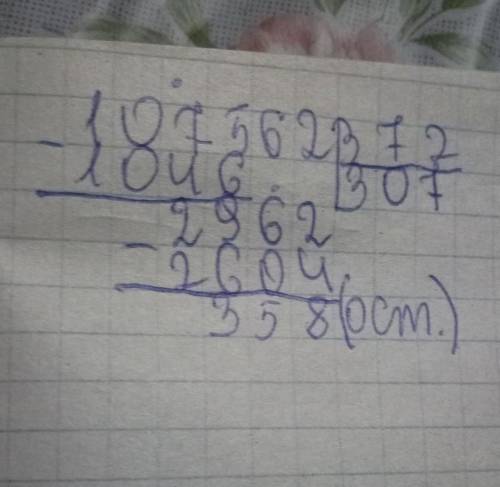 - 107562 372
1046 307
- 2962
2604
358 (ост.)